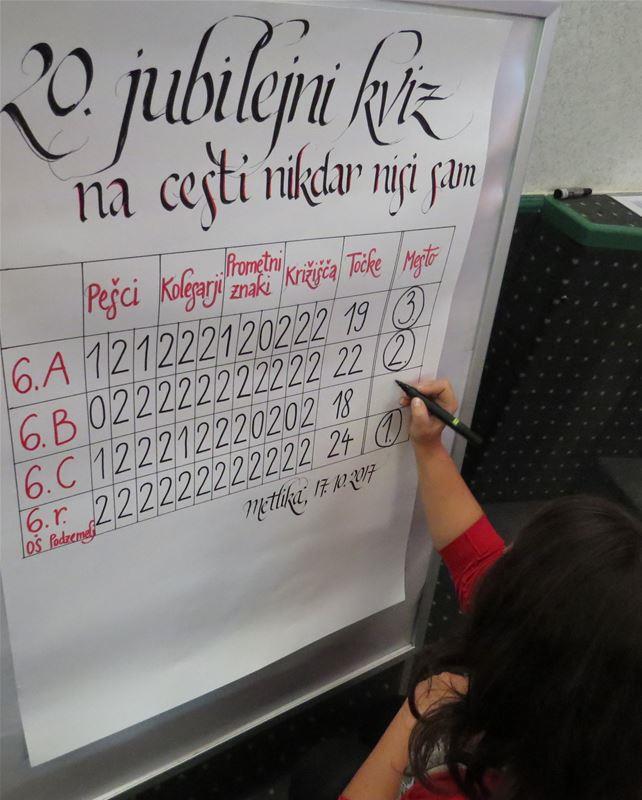 20. jubilejni kviz
na cesti nikdar nisi sam
Pešci Kolesarji Prometni znaki Križišča Točke Mesto
6.A 1 2 1 2 2 2 1 2 0 2 2 2 19 3
6.B 0 2 2 2 2 2 2 2 2 2 2 2 22 2.
6.C 1 2 2 2 1 2 2 0 2 0 2 2 18
6.r. OŠ Podzemelj 2 2 2 2 2 2 2 2 2 2 2 2 24 1.
Metlika, 17.10.2017